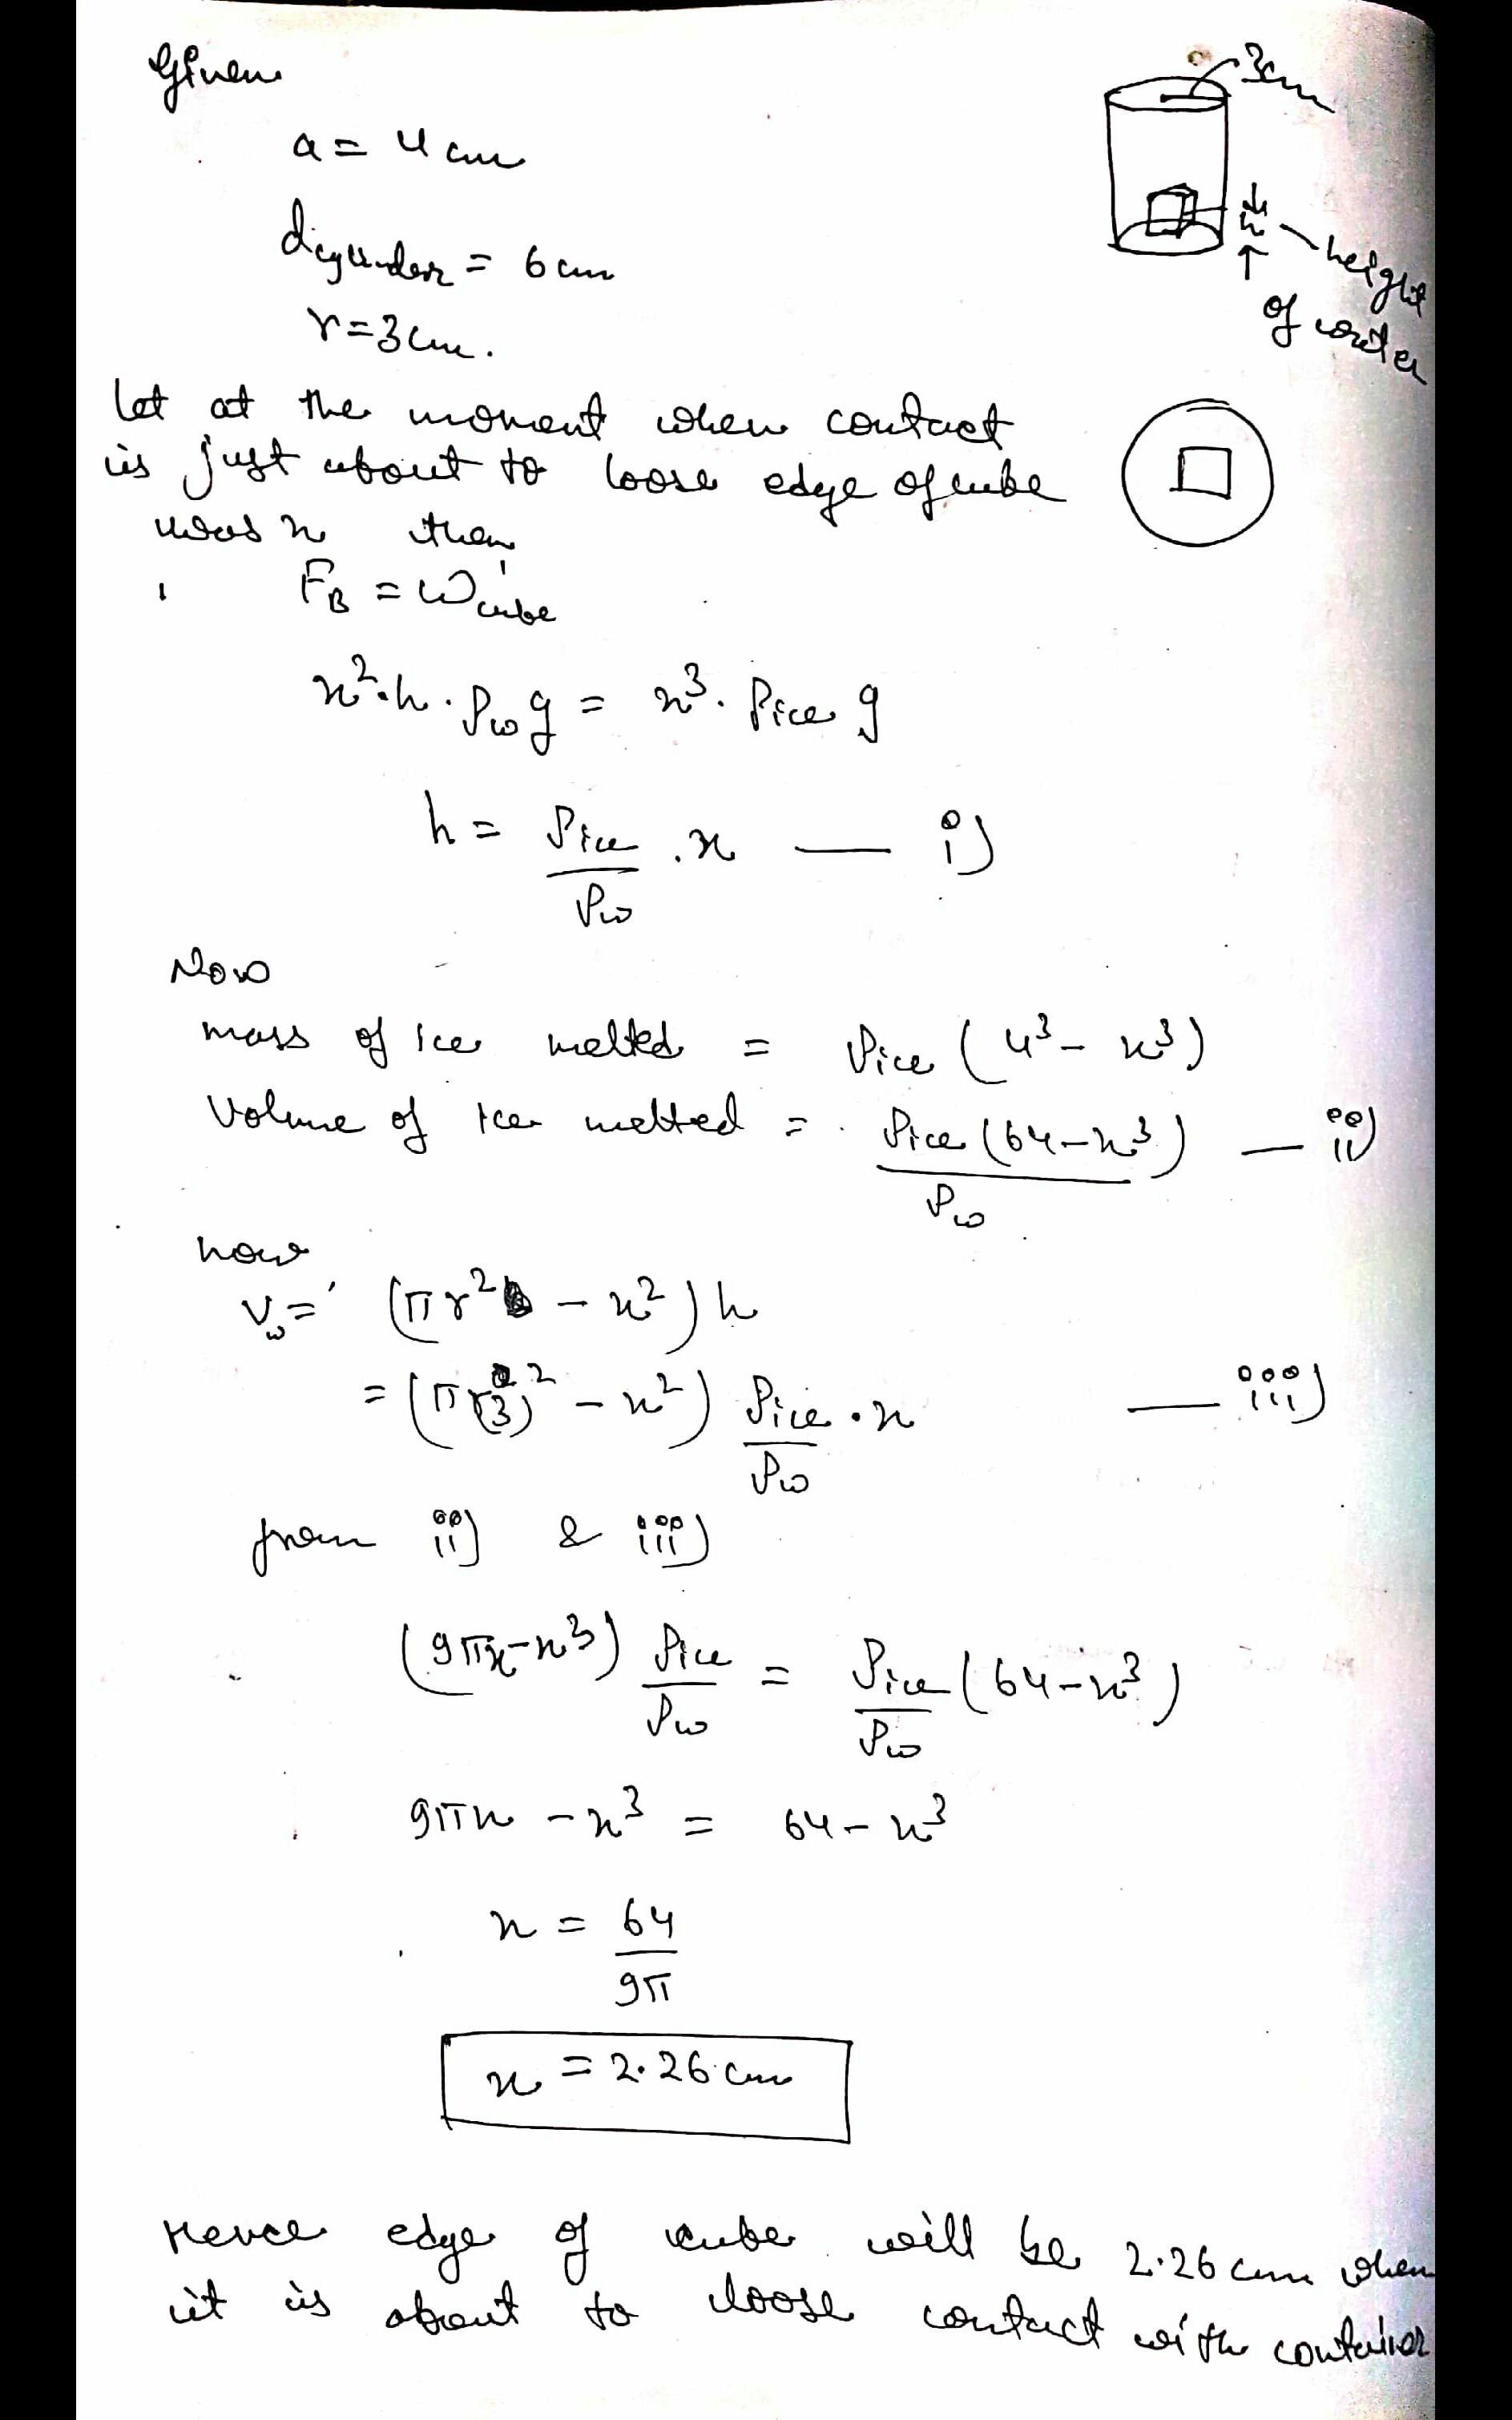 Given
3cm
a = 4 cm
dcylinder = 6 cm
r = 3 cm.
h - height
of water
Let at the moment when contact
is just about to loose edge of cube
was x then
FB = Wcube
x²·h·ρw g = x³·ρice g
h = ρice/ρw · x — i)
Now
mass of ice melted = ρice (4³ - x³)
Volume of ice melted = ρice (64 - x³)/ρw — ii)
now
Vw = (πr² - x²) h
= (π(3)² - x²) ρice/ρw · x — iii)
from ii) & iii)
(9πx - x³) ρice/ρw = ρice/ρw (64 - x³)
9πx - x³ = 64 - x³
x = 64/9π
x = 2.26 cm
Hence edge of cube will be 2.26 cm when
it is about to loose contact with container